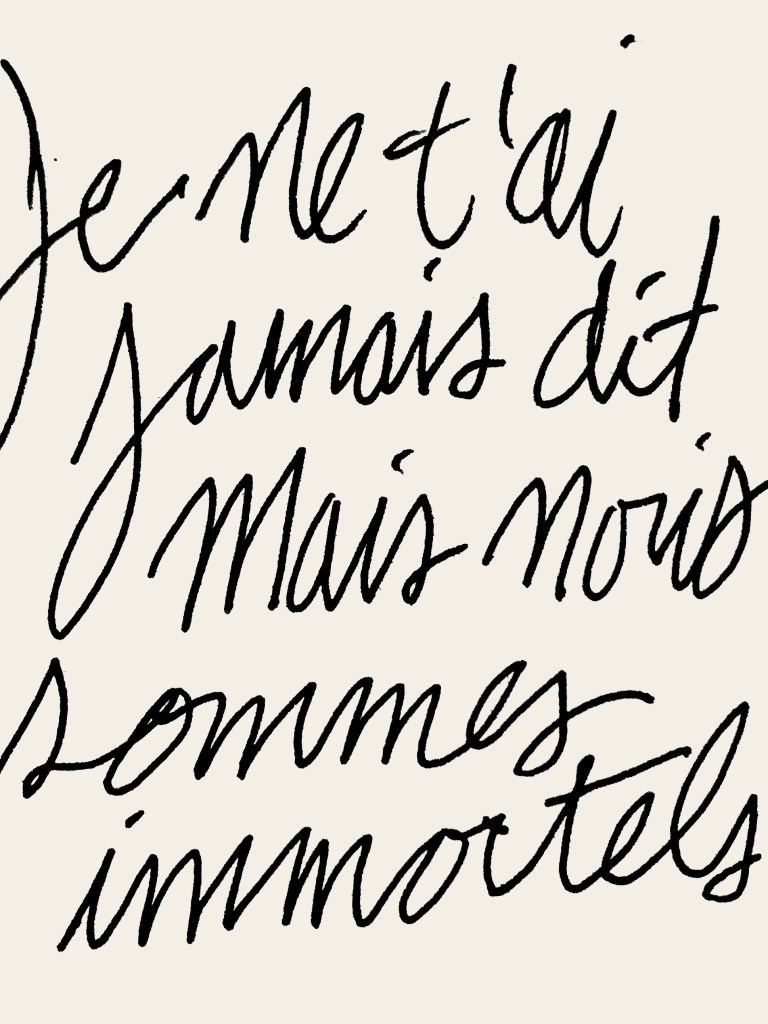 Je ne t'ai
jamais dit
mais nous
sommes
immortels